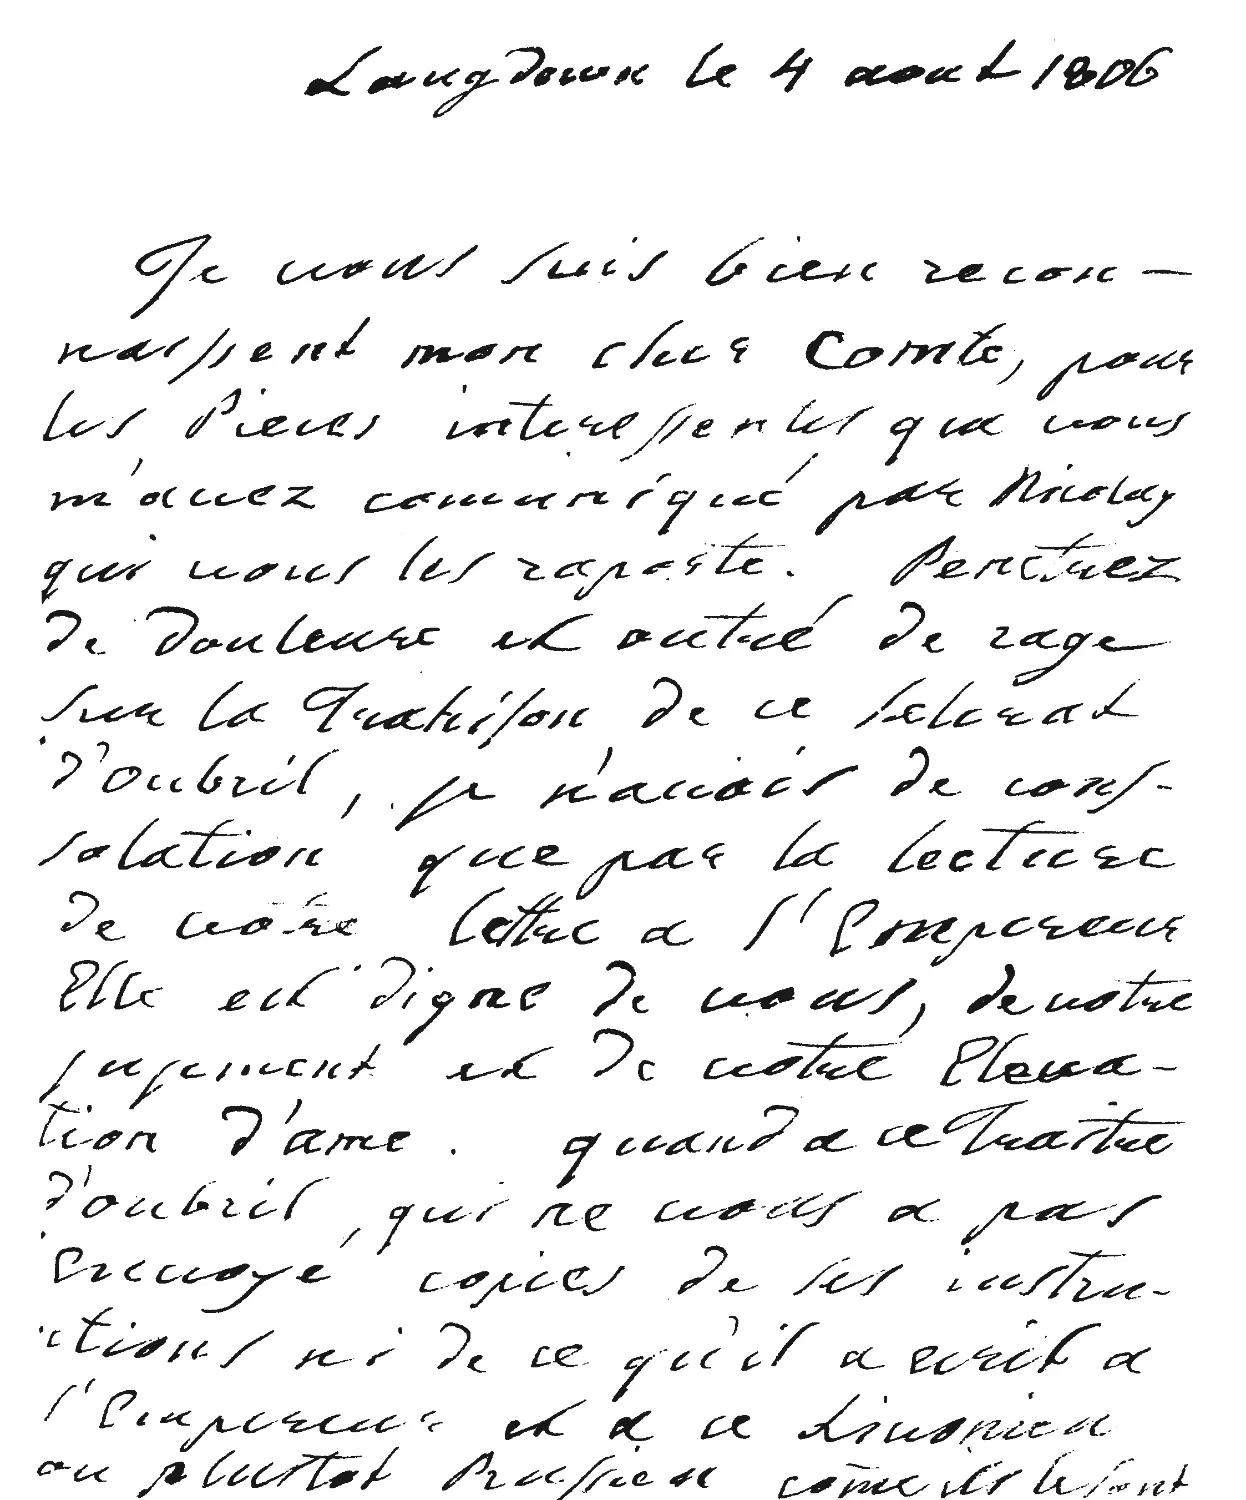 Langdown le 4 aout 1806
Je vous suis bien recon-
naissent mon cher Comte, pour
les Pieces interessentes que vous
m'avez comuniqué par Nicolay
qui vous les raporte. Penetrez
de douleure et outré de rage
sur la Trahison de ce scelerat
d'Oubril, je n'avois de cons-
solation que par la lecture
de votre lettre a l'Empereur
Elle est digne de vous, de votre
jugement et de votre Eleva-
tion d'ame. quand a ce Traitre
d'oubril, qui ne vous a pas
Envoyé copies de ses instru-
ctions ni de ce qu'il a ecrit a
l'Empereur et a ce Livonien
ou plustot Prussien come ils le sont